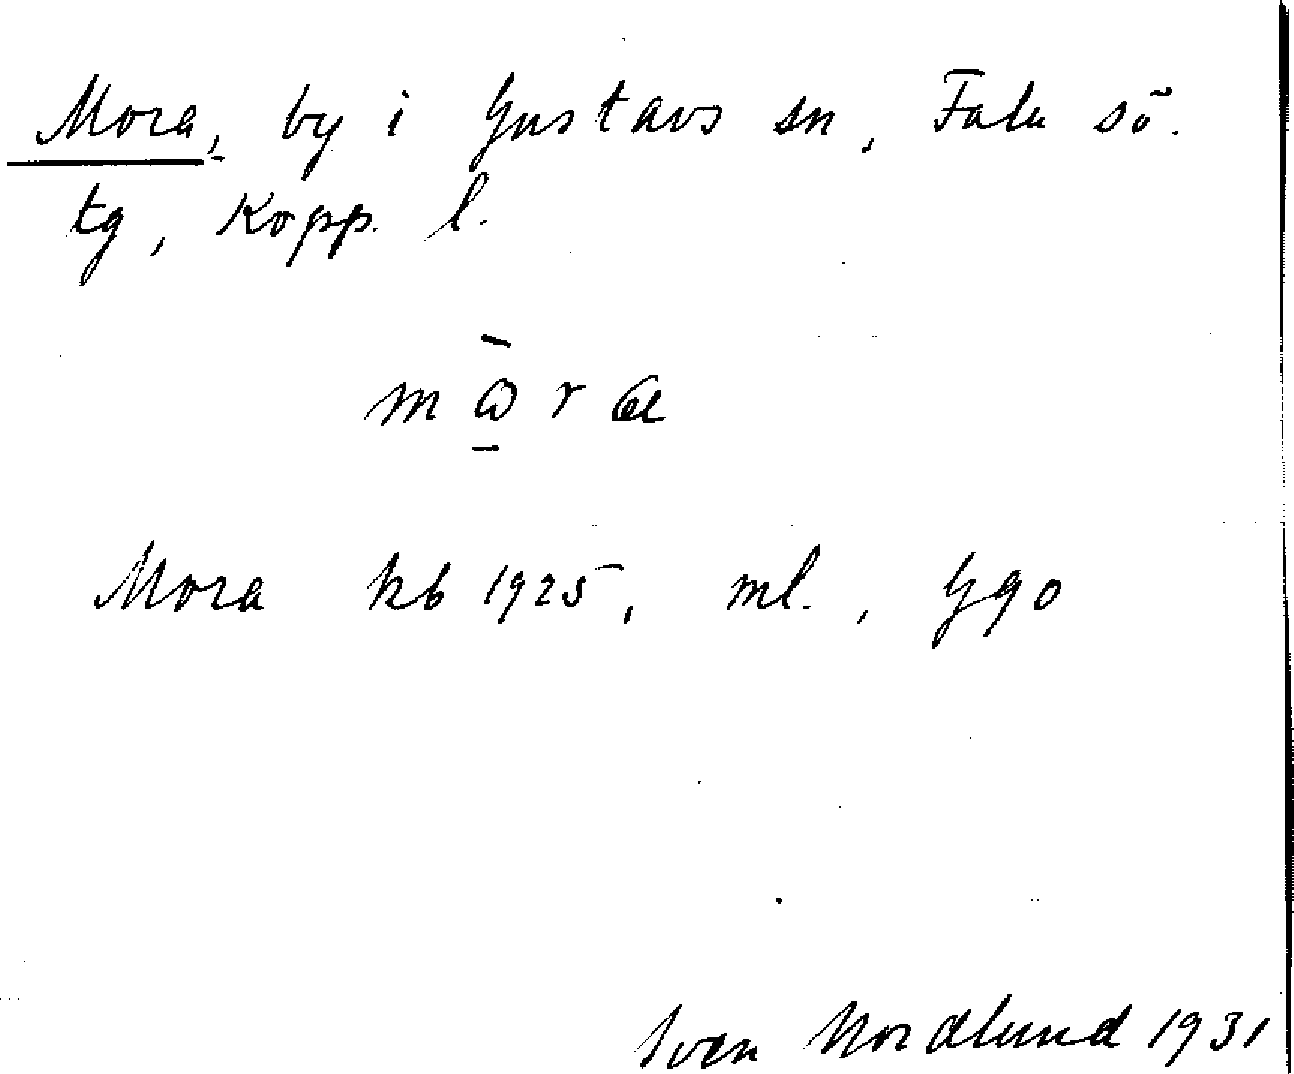 Mora, by i Gustavs sn, Falu sö.
tg, Kopp. l.
Mora kb 1925, ml., Ggo
Sven Nordlund 1931